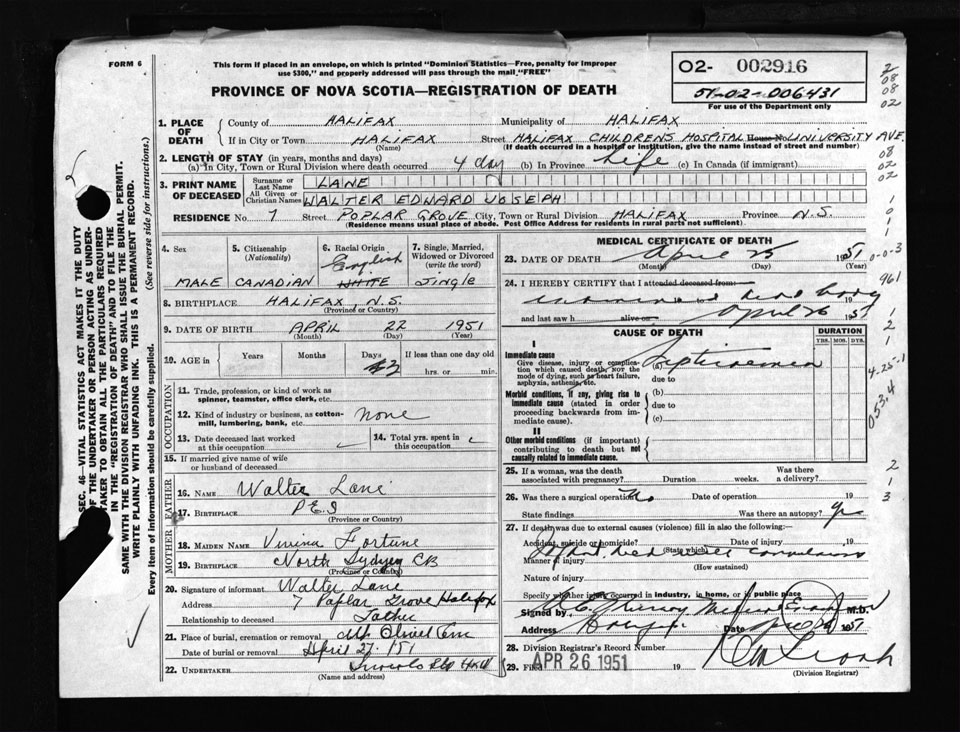 FORM 6
This form if placed in an envelope, on which is printed "Dominion Statistics—Free, penalty for Improper
use $300," and properly addressed will pass through the mail "FREE"
O2- 002916
51-02-006431
For use of the Department only
PROVINCE OF NOVA SCOTIA—REGISTRATION OF DEATH
2
08
08
02
1. PLACE OF DEATH
County of HALIFAX Municipality of HALIFAX
If in City or Town HALIFAX Street HALIFAX CHILDRENS HOSPITAL House No UNIVERSITY AVE.
(Name) (If death occurred in a hospital or institution, give the name instead of street and number)
2. LENGTH OF STAY (in years, months and days)
(a) In City, Town or Rural Division where death occurred 4 day (b) In Province Life (c) In Canada (if immigrant)
08
02
02
3. PRINT NAME OF DECEASED
Surname or Last Name LANE
All Given or Christian Names WALTER EDWARD JOSEPH
RESIDENCE No 7 Street POPLAR GROVE City, Town or Rural Division HALIFAX Province N.S.
(Residence means usual place of abode. Post Office Address for residents in rural parts not sufficient).
1
0
1
1
4. Sex MALE
5. Citizenship (Nationality) CANADIAN
6. Racial Origin English WHITE
7. Single, Married, Widowed or Divorced (write the word) Single
8. BIRTHPLACE HALIFAX, N.S.
(Province or Country)
9. DATE OF BIRTH APRIL 22 1951
(Month) (Day) (Year)
10. AGE in Years Months Days 3 If less than one day old
hrs. or min.
OCCUPATION
11. Trade, profession, or kind of work as
spinner, teamster, office clerk, etc.
12. Kind of industry or business, as cotton-
mill, lumbering, bank, etc. None
13. Date deceased last worked
at this occupation
14. Total yrs. spent in
this occupation
15. If married give name of wife
or husband of deceased
FATHER
16. NAME Walter Lane
17. BIRTHPLACE P E I
(Province or Country)
MOTHER
18. MAIDEN NAME Fortune
19. BIRTHPLACE North Sydney CB
(Province or Country)
20. Signature of informant Walter Lane
Address 7 Poplar Grove Halifax
Relationship to deceased Father
21. Place of burial, cremation or removal Mt Olivet Cem
Date of burial or removal April 27/51
22. UNDERTAKER
(Name and address)
MEDICAL CERTIFICATE OF DEATH
23. DATE OF DEATH April 25 1951
(Month) (Day) (Year)
0-0-3
24. I HEREBY CERTIFY that I attended deceased from:
examined dead body 19
and last saw h alive on April 26 1951
961
1
2
1
CAUSE OF DEATH
DURATION
YRS. MOS. DYS.
I
Immediate cause
Give disease, injury or complica-
tion which caused death, not the
mode of dying, such as heart failure,
asphyxia, asthenia, etc.
(a) Septicaemia
due to
Morbid conditions, if any, giving rise to
immediate cause (stated in order
proceeding backwards from im-
mediate cause).
(b)
due to
(c)
II
Other morbid conditions (if important)
contributing to death but not
causally related to immediate cause.
4-25-1
053.4
25. If a woman, was the death
associated with pregnancy? Duration weeks. Was there
a delivery?
26. Was there a surgical operation No Date of operation 19
State findings Was there an autopsy? Yes
2
1
3
27. If death was due to external causes (violence) fill in also the following:—
Accident, suicide or homicide? Date of injury 19
(State which)
Manner of injury
(How sustained)
Nature of injury
Specify whether injury occurred in industry, in home, or in public place
Signed by M.D.
Address Date 1951
28. Division Registrar's Record Number
29. Filed APR 26 1951 19
(Division Registrar)
SEC. 46—VITAL STATISTICS ACT MAKES IT THE DUTY
OF THE UNDERTAKER OR PERSON ACTING AS UNDER-
TAKER TO OBTAIN ALL THE PARTICULARS REQUIRED
IN THE "REGISTRATION OF DEATH" AND TO FILE THE
SAME WITH THE DIVISION REGISTRAR WHO SHALL ISSUE THE BURIAL PERMIT.
WRITE PLAINLY WITH UNFADING INK. THIS IS A PERMANENT RECORD.
Every item of information should be carefully supplied. (See reverse side for instructions.)